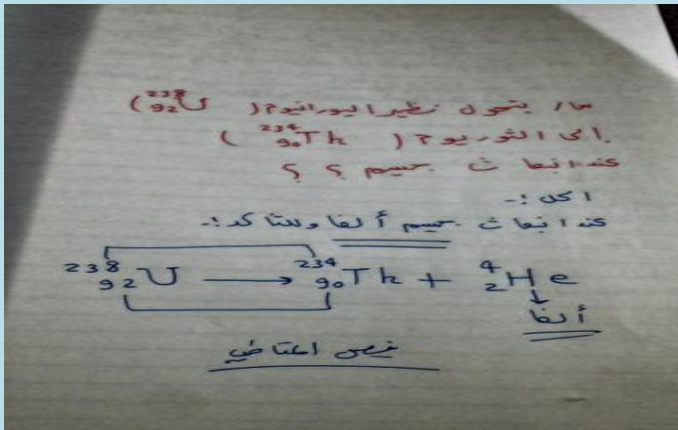 س/ يتحول نظير اليورانيوم ( ²³⁸₉₂U )
إلى الثوريوم ( ²³⁴₉₀Th )
عند انبعاث جسيم ؟ ؟
الحل :-
عند انبعاث جسيم ألفا وللتأكد :-
²³⁸₉₂U → ²³⁴₉₀Th + ⁴₂He
↓
ألفا